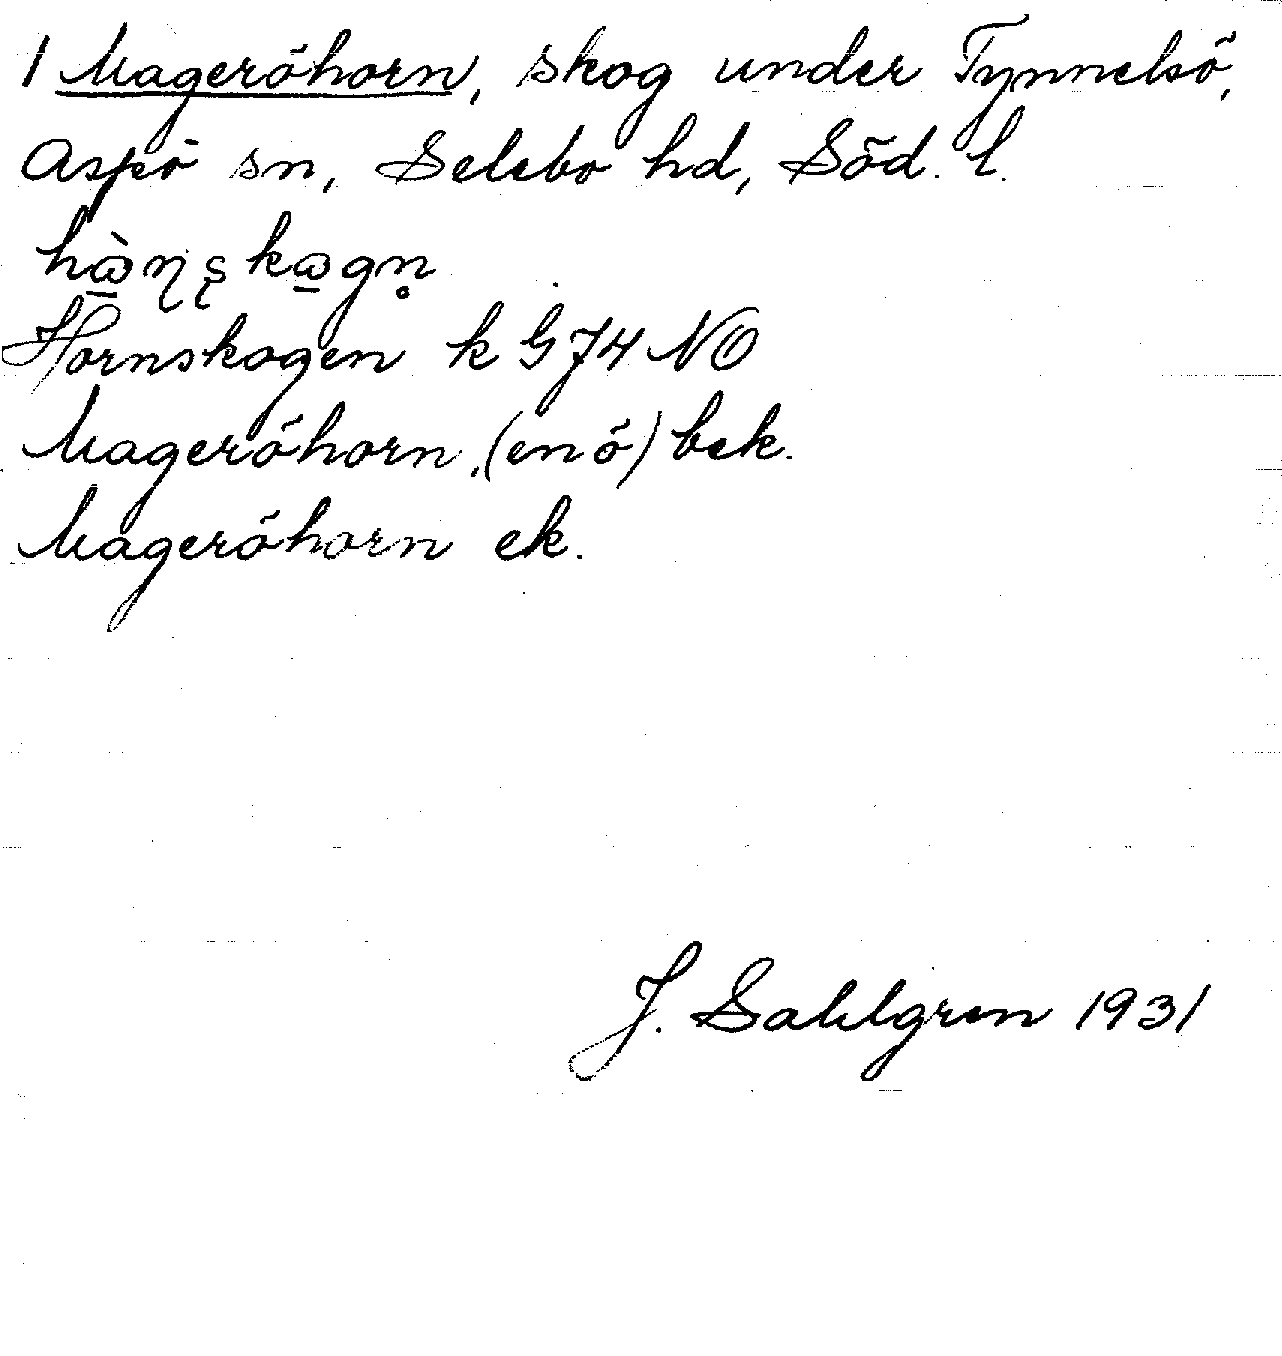 1 Mageröhorn, skog under Tynnelsö,
Aspö sn, Selebo hd, Söd. l.
hɷ̠̀ɳʂkɷ̠gn̥
Hornskogen k G74 NO
Mageröhorn (en ö) bek.
Mageröhorn ek.
J. Sahlgren 1931